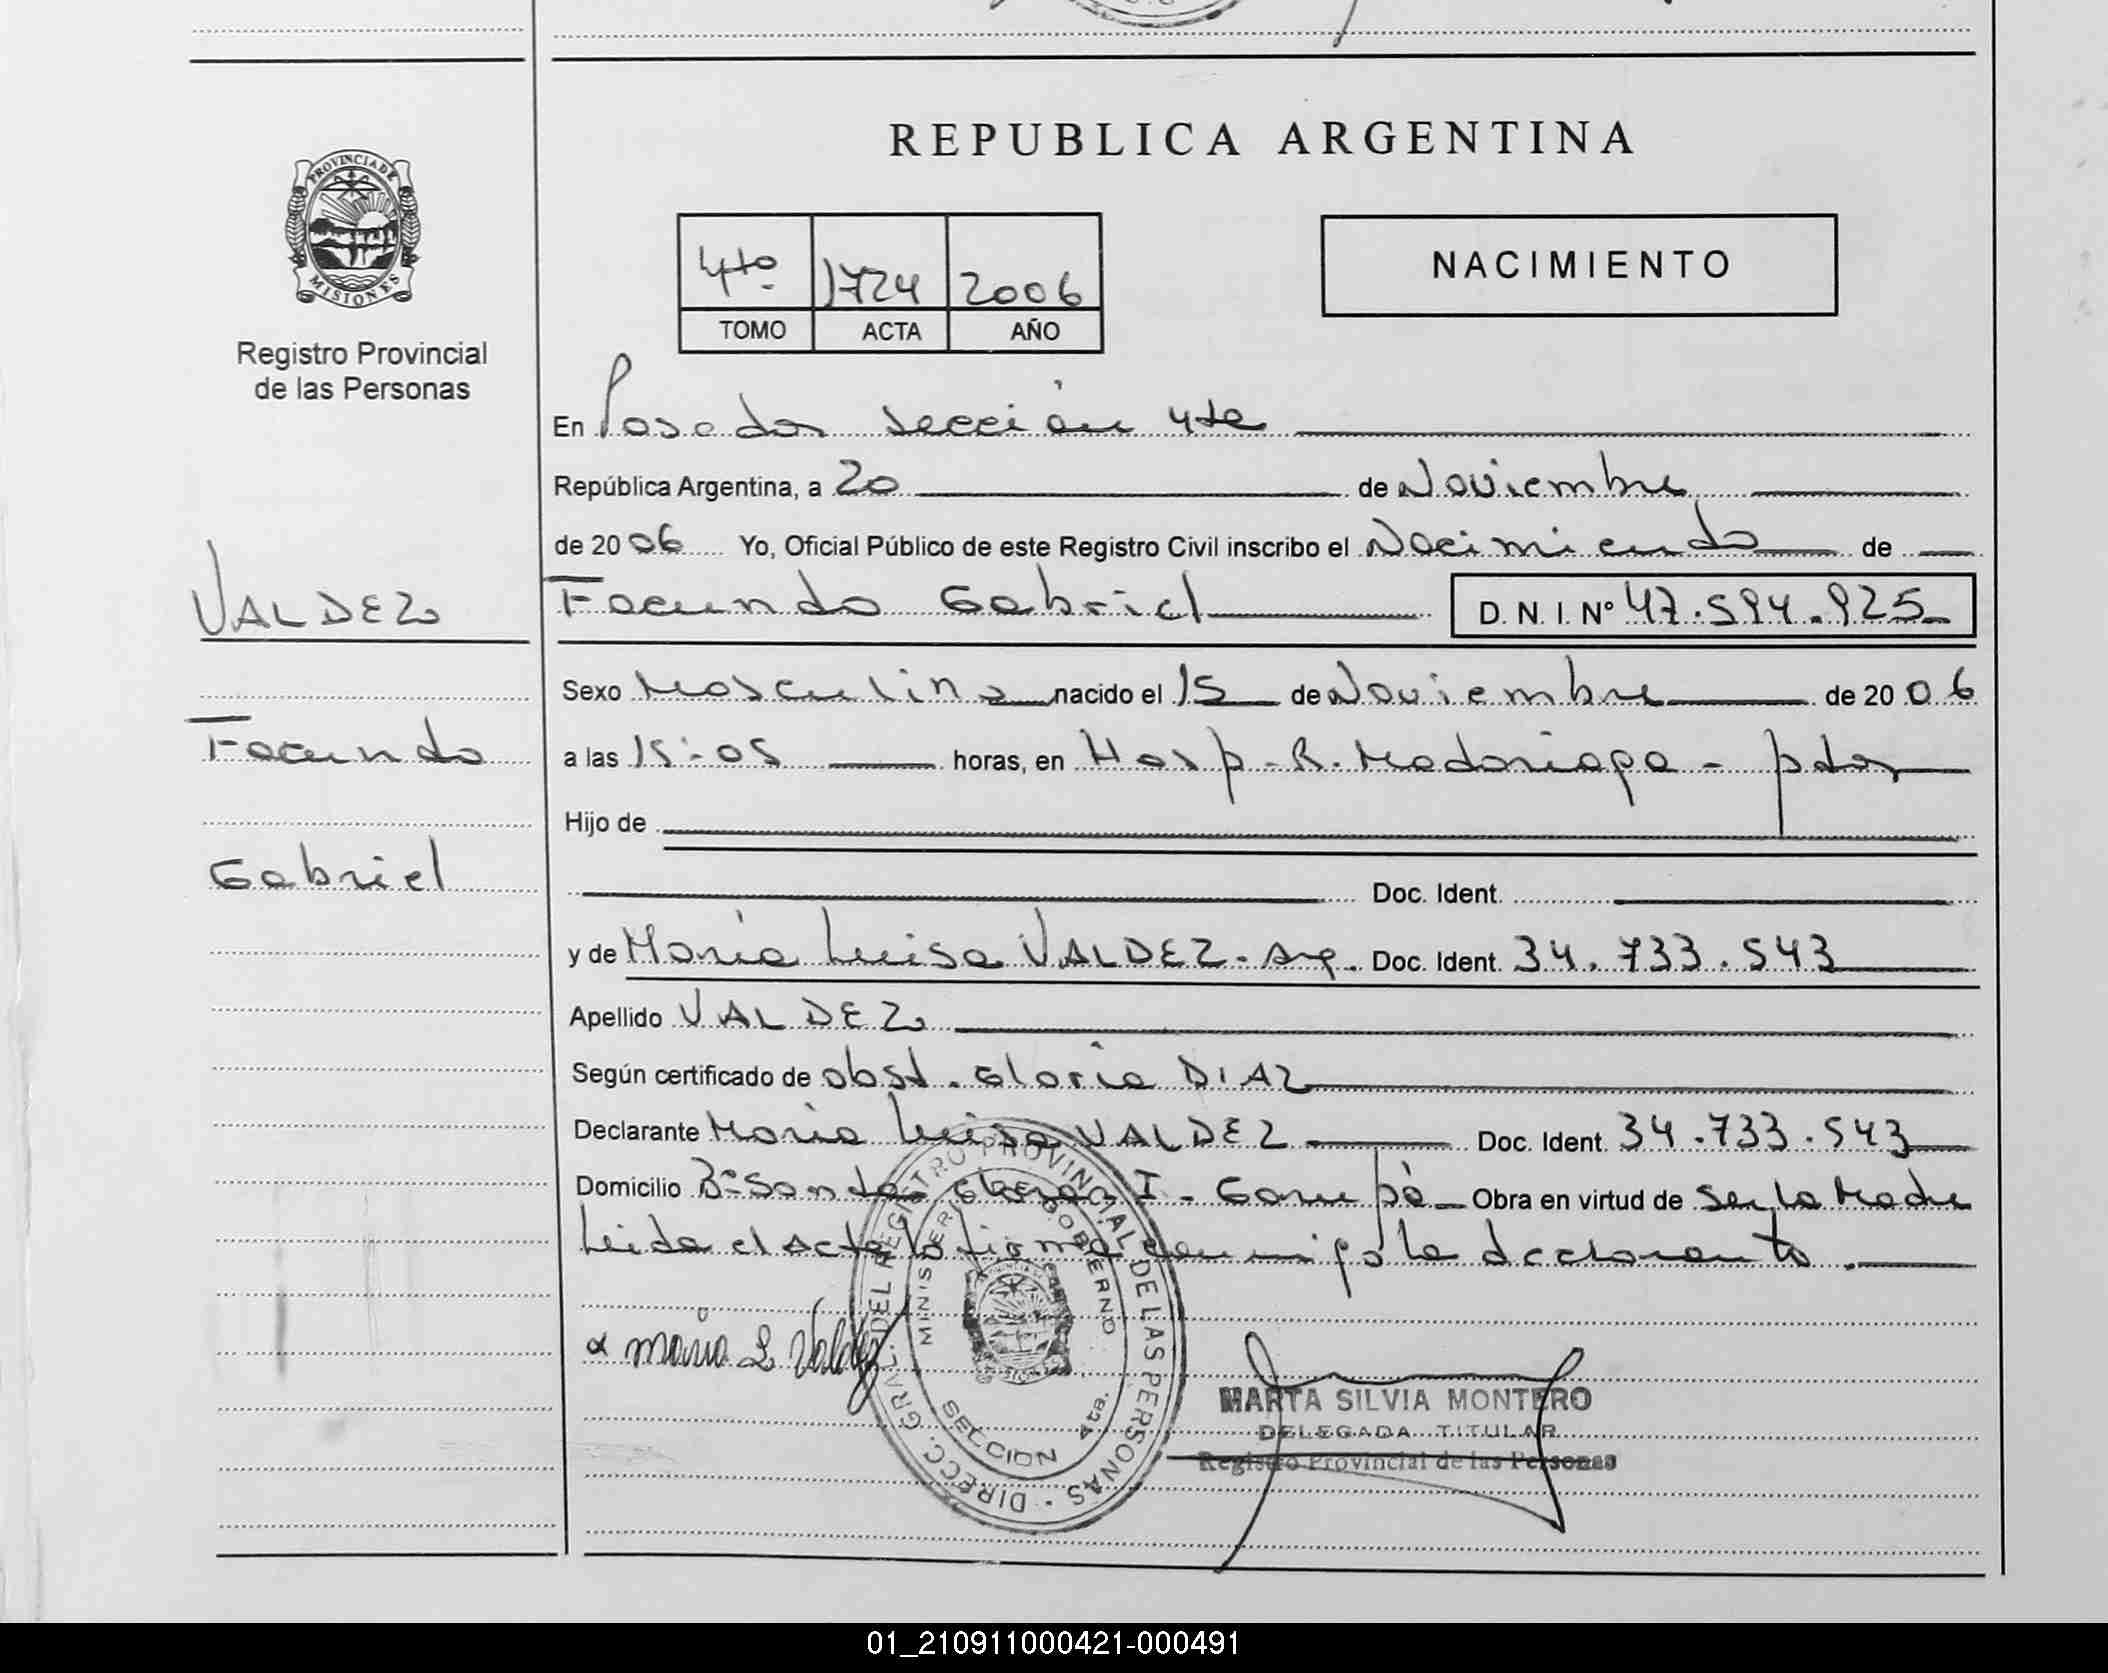 REPUBLICA ARGENTINA
PROVINCIA DE MISIONES
Registro Provincial
de las Personas
4to 1724 2006
TOMO ACTA AÑO
NACIMIENTO
En Posadas sección 4ta
República Argentina, a 20 de Noviembre
de 2006 Yo, Oficial Público de este Registro Civil inscribo el Nacimiento de
VALDEZ
Facundo Gabriel D. N. I. Nº 47.594.925
Sexo Masculino nacido el 15 de Noviembre de 2006
Facundo
a las 15:05 horas, en Hosp. R. Madariaga - pdas
Hijo de
Gabriel
Doc. Ident.
y de María Luisa VALDEZ - arg. Doc. Ident. 34.733.543
Apellido VALDEZ
Según certificado de obst. Gloria DIAZ
Declarante María Luisa VALDEZ Doc. Ident. 34.733.543
Domicilio Bº Santa I - Garupá Obra en virtud de ser la Madre
Leida el acta la firma conmigo la declarante.
María L Valdez
DIRECC. GRAL. DEL REGISTRO PROVINCIAL DE LAS PERSONAS
MINISTERIO DE GOBERNO
SECCION 4ta.
MARTA SILVIA MONTERO
DELEGADA TITULAR
Registro Provincial de las Personas
01_210911000421-000491